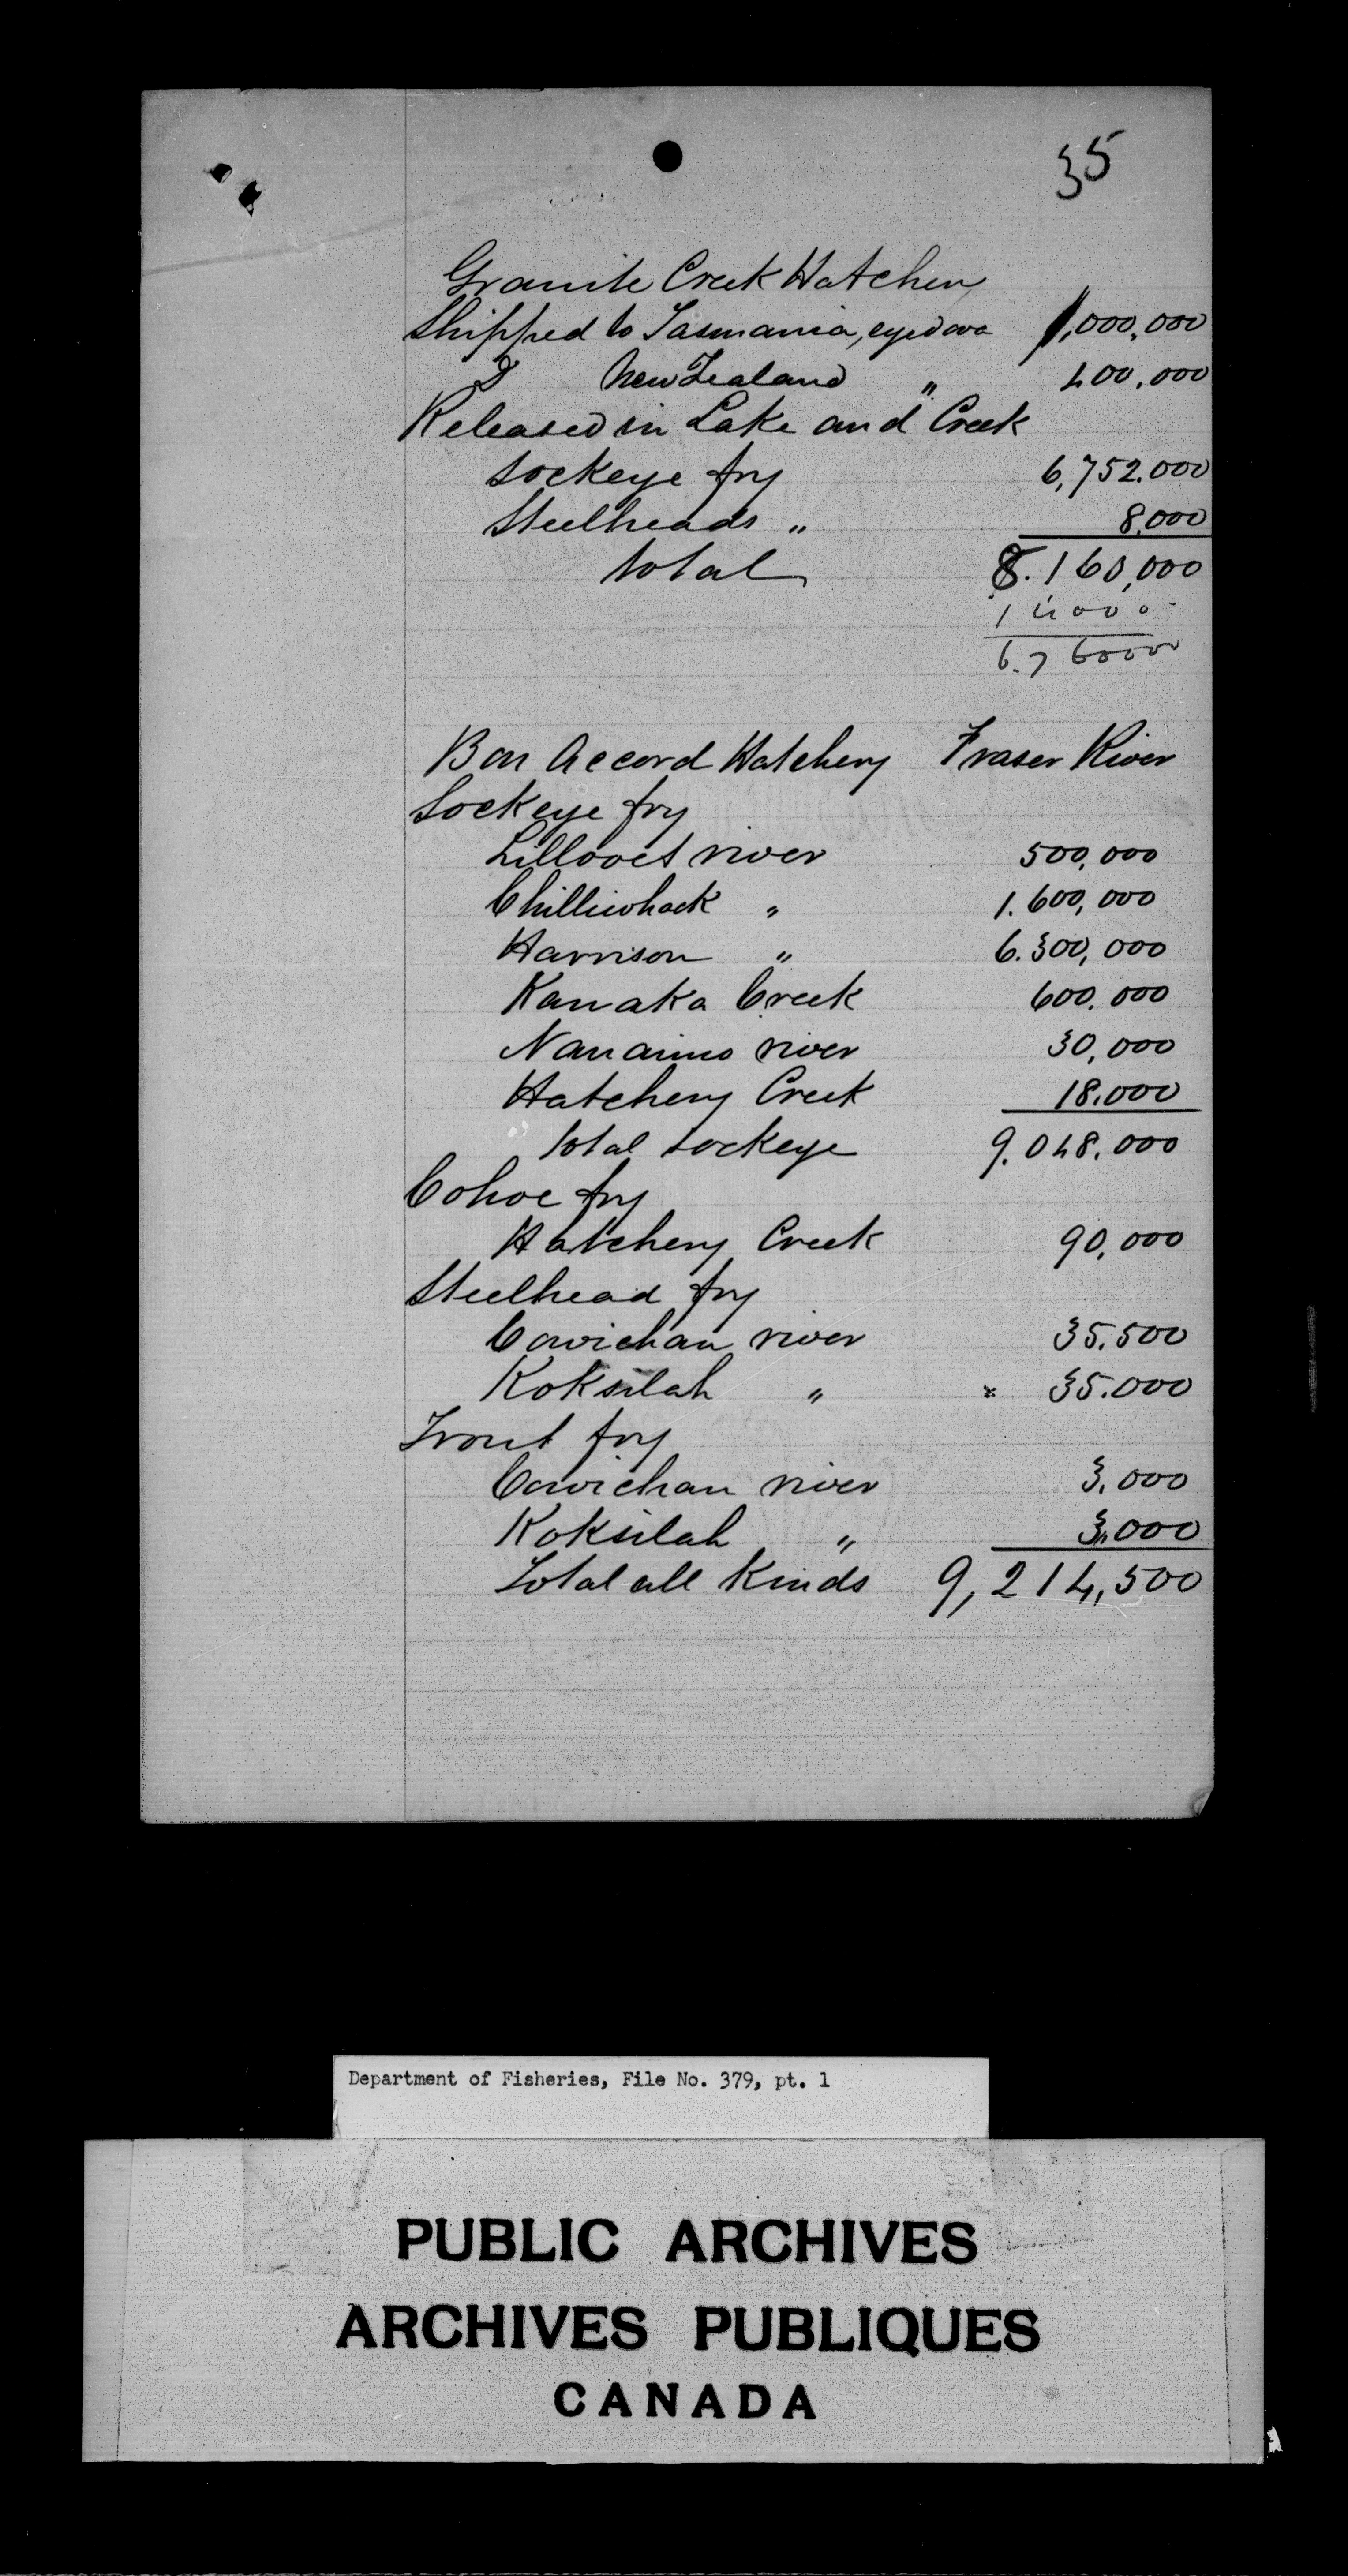 35
Granite Creek Hatchery
Shipped to Tasmania, eyed ova 1,000,000
D New Zealand " 400.000
Released in Lake and Creek
Sockeye fry 6,752.000
Steelheads " 8,000
total 8.160,000
140000
6.760000
Bon Accord Hatchery Fraser River
Sockeye fry
Lillooet river 500,000
Chilliwhack " 1.600,000
Harrison " 6.300,000
Kanaka Creek 600.000
Nanaimo river 30,000
Hatchery Creek 18.000
total sockeye 9.048.000
Cohoe fry
Hatchery Creek 90,000
Steelhead fry
Cowichan river 35.500
Koksilah " x 35.000
Trout fry
Cowichan river 3.000
Koksilah " 3,000
Total all Kinds 9,214,500
Department of Fisheries, File No. 379, pt. 1
PUBLIC ARCHIVES
ARCHIVES PUBLIQUES
CANADA